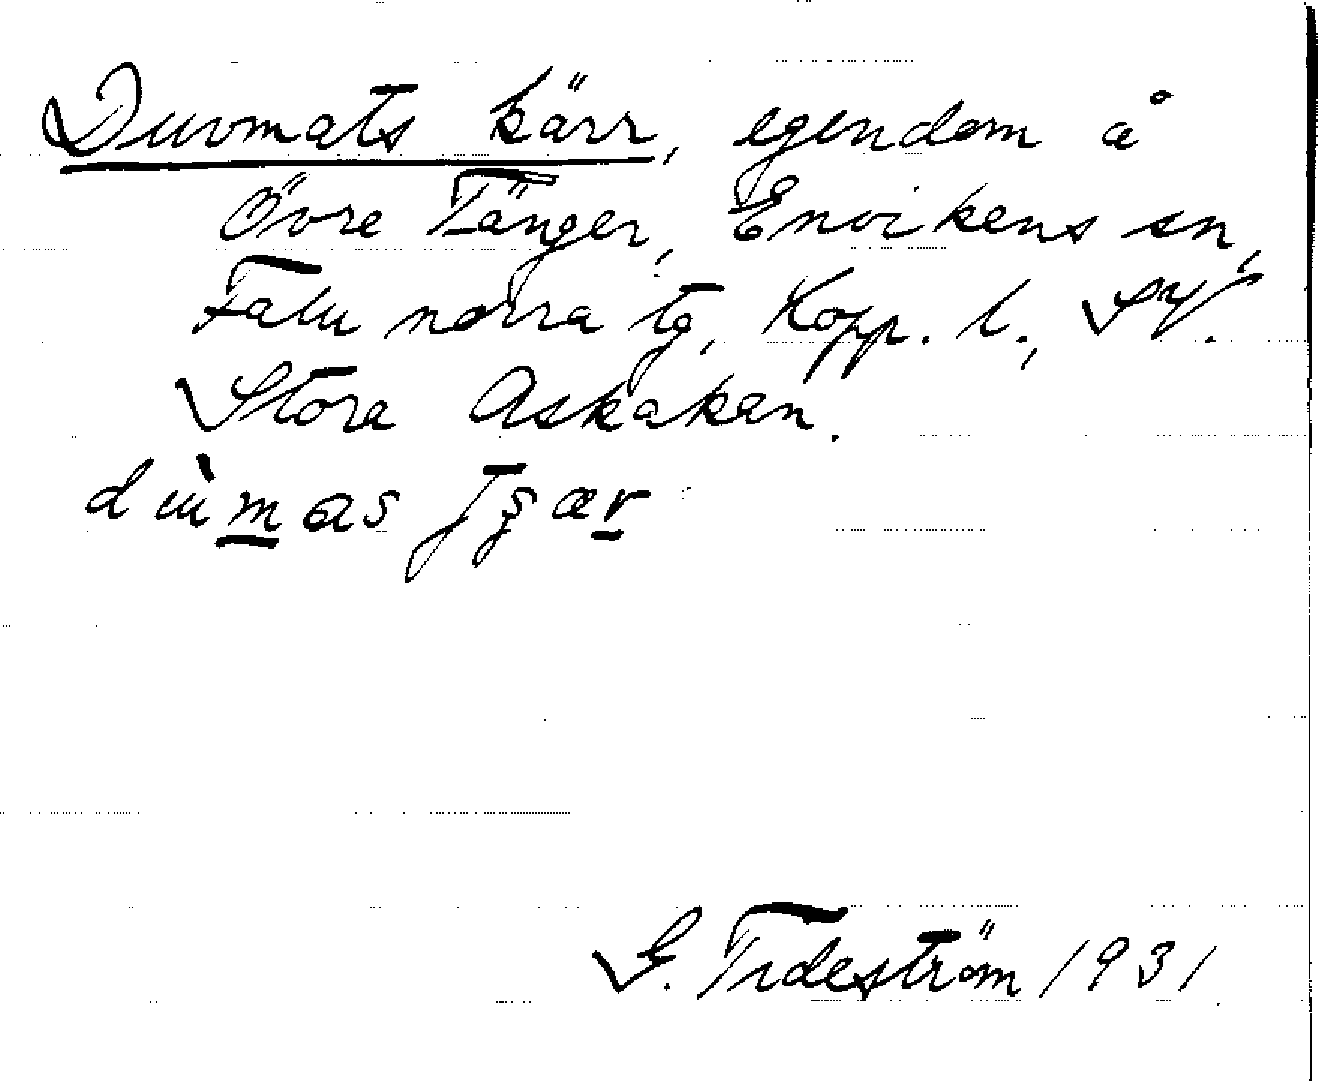 Duvmats kärr, egendom å
Övre Tänger, Envikens sn,
Falu norra tg, Kopp. l., SV.
Stora Askaken.
G. Tideström 1931